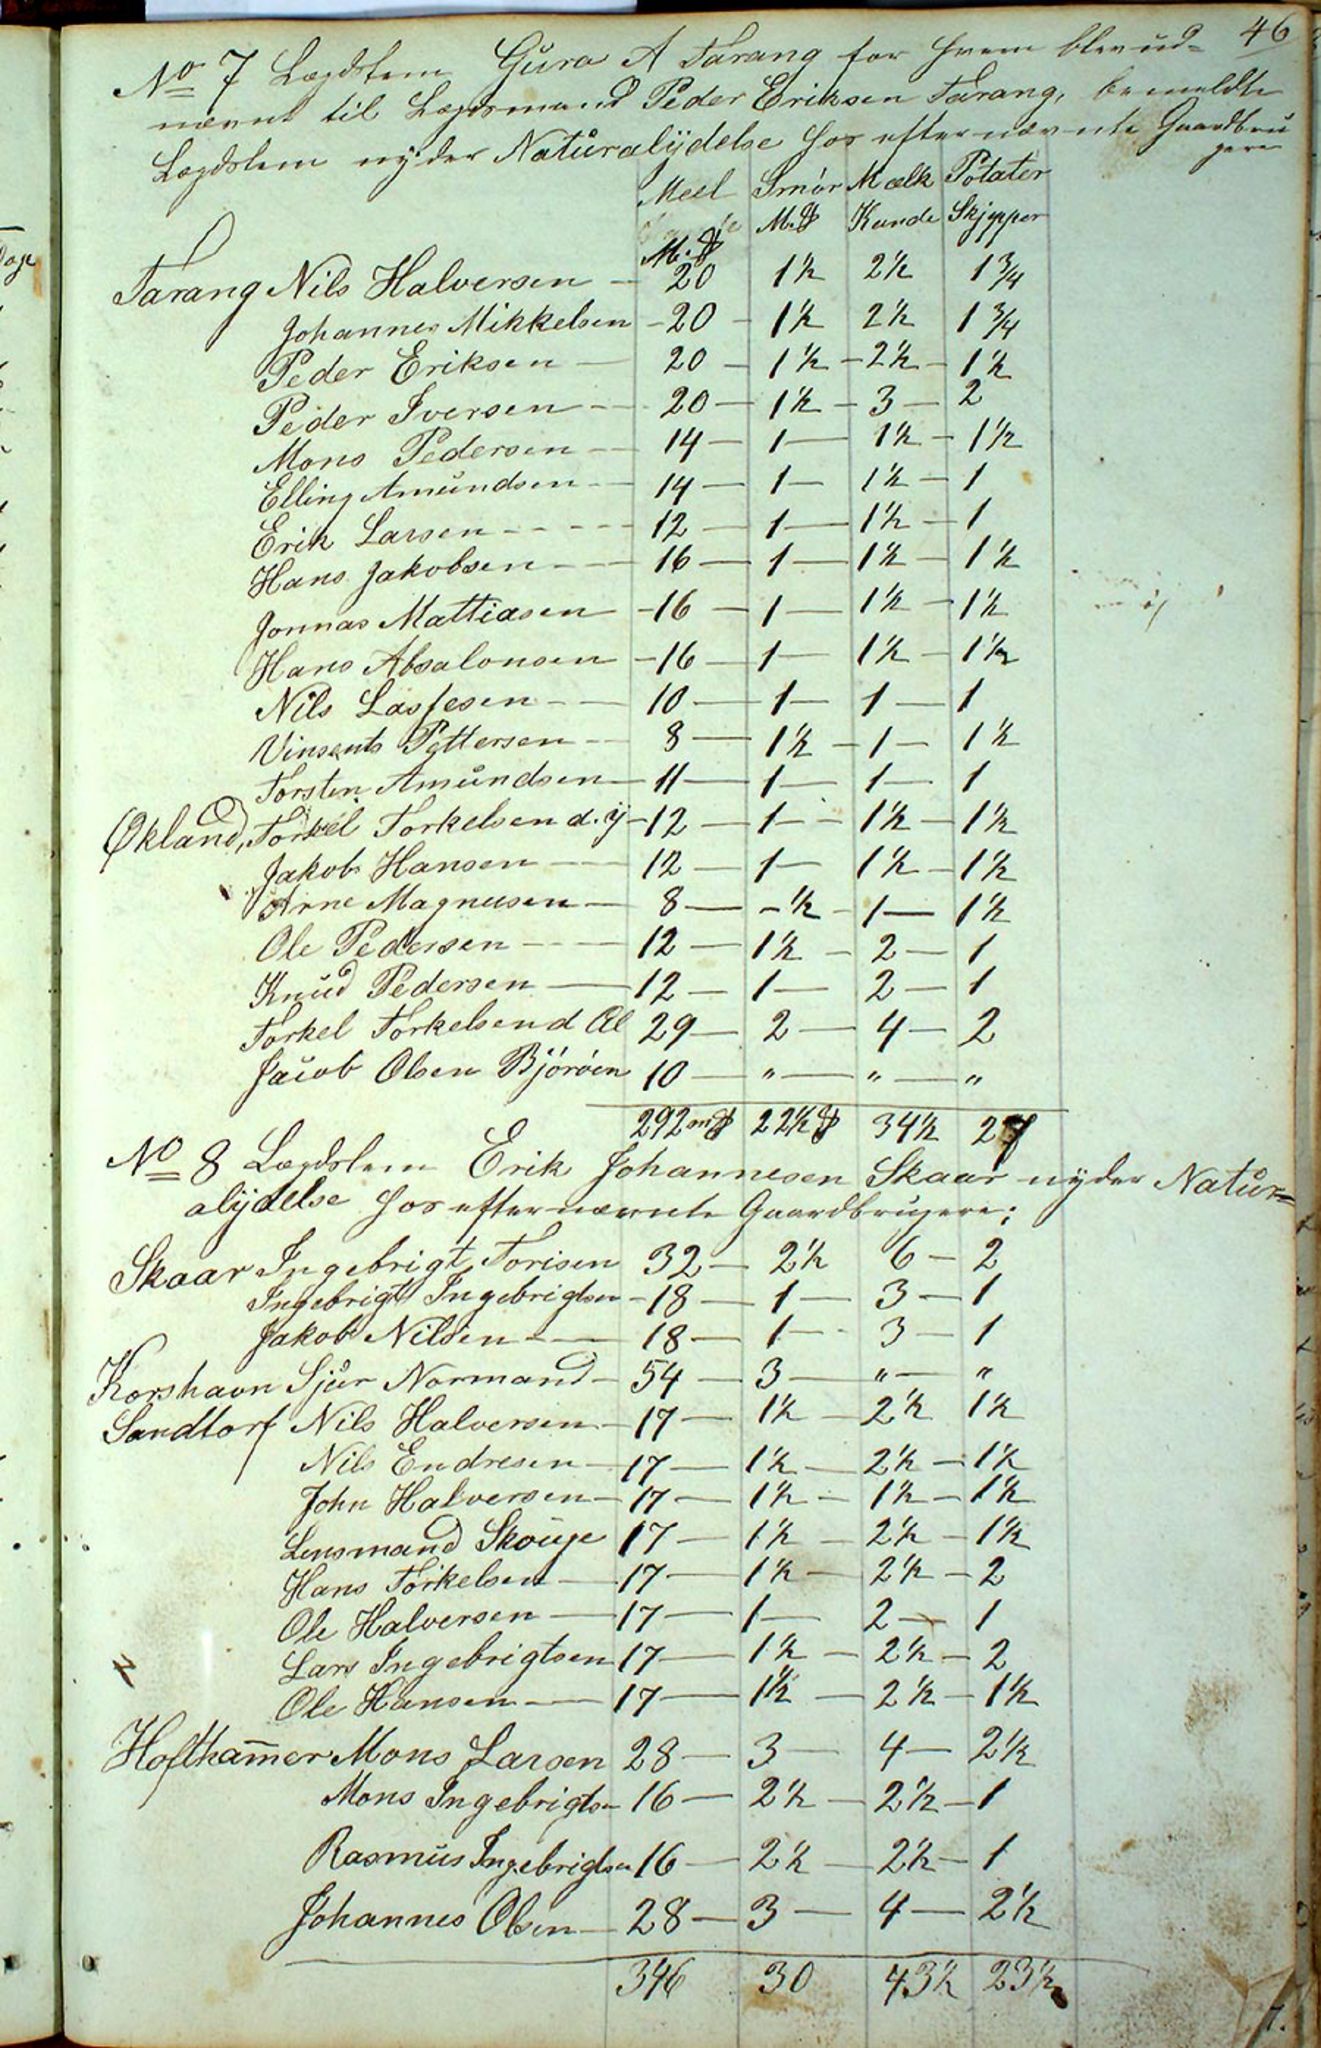 46
No 7 Lægdslem Gura A Tarang for hvem blev ud-
nævnt til Lægdsmand Peder Eriksen Tarang, bemeldte
Lægdslem nyder Naturalydelse hos efternævnte Gaardbru
gere
Meel Smør Mælk Potater
M.℔ Kande Skjepper
M.℔
Tarang Nils Halversen - 20 1½ 2½ 1¾
Johannes Mikkelsen - 20 - 1½ 2½ 1¾
Peder Eriksen - 20 - 1½ - 2½ - 1½
Peder Iversen - 20 - 1½ - 3 - 2
Mons Pedersen - 14 - 1 - 1½ - 1½
Elling Amundsen - 14 - 1 - 1½ - 1
Erik Larsen - 12 - 1 - 1½ - 1
Hans Jakobsen - 16 - 1 - 1½ - 1½
Jonnas Mattiasen - 16 - 1 - 1½ - 1½
Hans Absalonsen - 16 - 1 - 1½ - 1½
Nils Lassesen - 10 - 1 - 1 - 1
Vinsents Pettersen - 8 - 1½ - 1 - 1½
Torsten Amundsen - 11 - 1 - 1 - 1
Økland, Torkel Torkelsen d. y - 12 - 1 - 1½ - 1½
Jakob Hansen - 12 - 1 - 1½ - 1½
Arne Magnusen - 8 - - ½ - 1 - 1½
Ole Pedersen - 12 - 1½ - 2 - 1
Knud Pedersen - 12 - 1 - 2 - 1
Torkel Torkelsen d Æl 29 - 2 - 4 - 2
Jacob Olsen Bjørøen 10 - " - " - "
292 m℔ 22½ ℔ 34½ 27
No 8 Lægdslem Erik Johannesen Skaar nyder Natur=
alydelse hos efternævnte Gaardbrugere;
Skaar Ingebrigt Torisen 32 - 2½ 6 - 2
Ingebrigt Ingebrigtsen - 18 - 1 - 3 - 1
Jakob Nilsen - 18 - 1 - 3 - 1
Korshavn Sjur Normand - 54 - 3 - " - "
Sandtorf Nils Halversen - 17 - 1½ - 2½ 1½
Nils Endresen - 17 - 1½ - 2½ - 1½
John Halversen - 17 - 1½ - 1½ - 1½
Lensmand Skouge 17 - 1½ - 2½ - 1½
Hans Torkelsen - 17 - 1½ - 2½ - 2
Ole Halversen - 17 - 1 - 2 - 1
Lars Ingebrigtsen 17 - 1½ - 2½ - 2
Ole Hansen - 17 - 1½ - 2½ - 1½
Hofthammer Mons Larsen 28 - 3 - 4 - 2½
Mons Ingebrigtsen - 16 - 2½ - 2½ - 1
Rasmus Ingebrigtsen 16 - 2½ - 2½ - 1
Johannes Olsen - 28 - 3 - 4 - 2½
346 30 43½ 23½